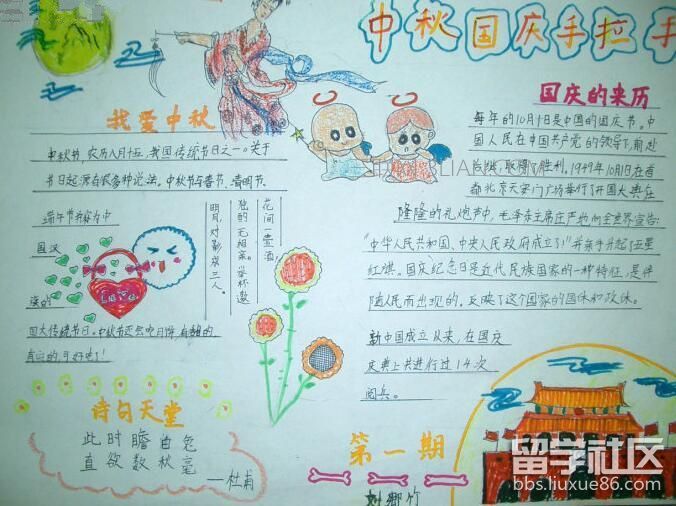 中秋国庆手拉手
我爱中秋
中秋节,农历八月十五,我国传统节日之一。关于
节日起源有很多种说法。中秋节与春节、清明节、
端午节并称为中
国汉
族的
四大传统节日。中秋节还会吃月饼,
真的好吃了!
花间一壶酒,
独酌无相亲。举杯邀
明月,对影成三人。
Love
诗句天堂
此时瞻白兔
直欲数秋毫
——杜甫
国庆的来历
每年的10月1日是中国的国庆节。中
国人民在中国共产党的领导下,前赴
后继,取得了胜利。1949年10月1日在首
都北京天安门广场举行了开国大典在
隆隆的礼炮声中,毛泽东主席庄严地向全世界宣告:
“中华人民共和国、中央人民政府成立了!”并亲手升起了五星
红旗。国庆纪念日是近代民族国家的一种特征,是伴
随人民而出现的。反映了这个国家的国体和政体。
新中国成立以来,在国庆
庆典上共进行过14次
阅兵。
第一期
留学社区
bbs.liuxue86.com